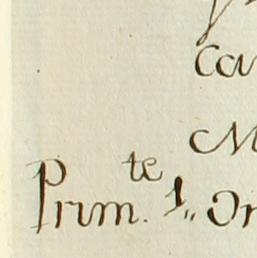 Ca
M
te
Prim. 1,, Or